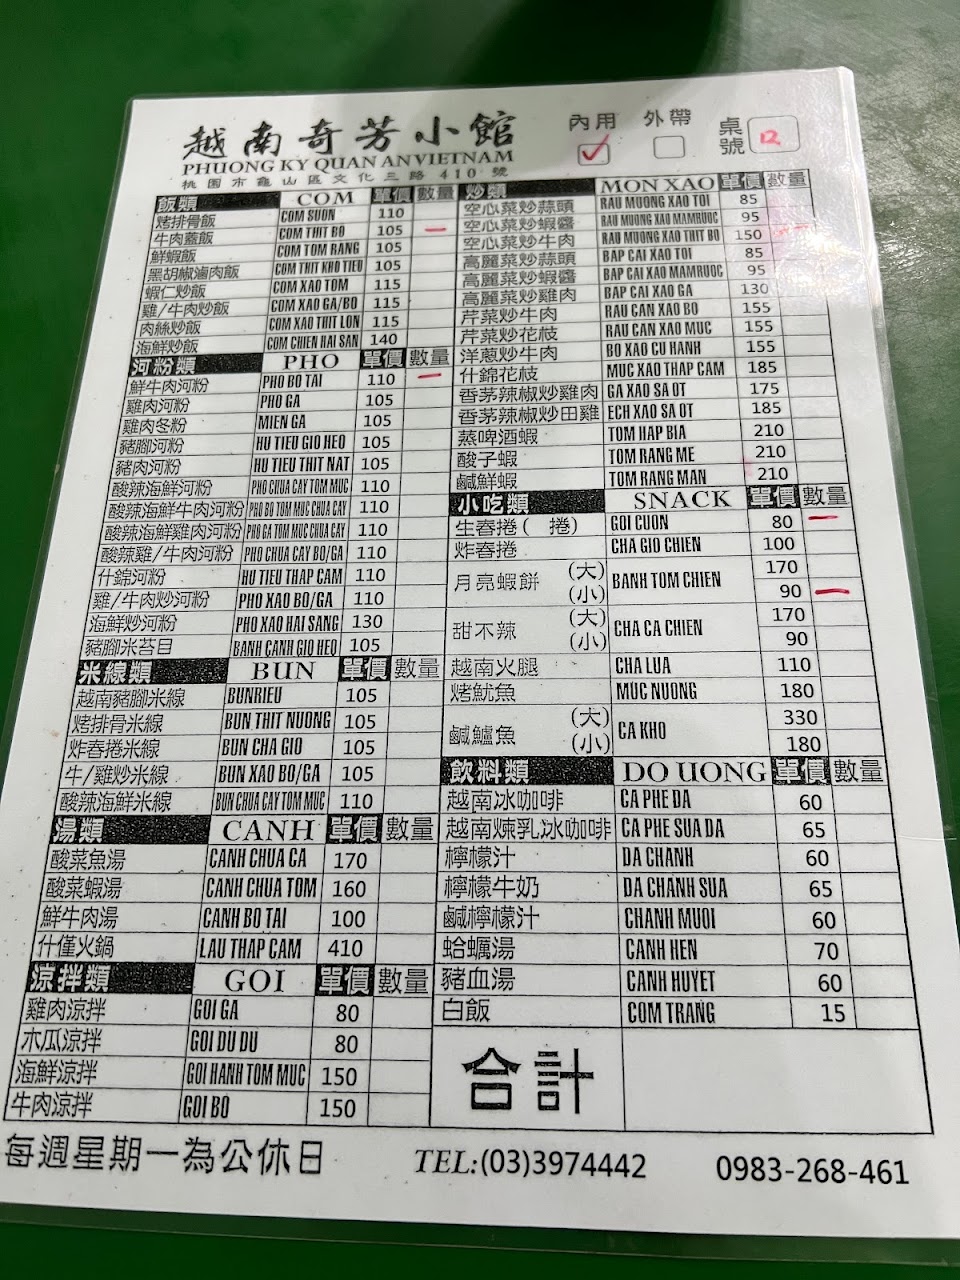 越南奇芳小館
PHUONG KY QUAN AN VIETNAM
桃園市龜山區文化三路 410 號
內用 ✓ 外帶 桌號 12
飯類 COM 單價 數量
烤排骨飯 COM SUON 110
牛肉蓋飯 COM THIT BO 105 一
鮮蝦飯 COM TOM RANG 105
黑胡椒滷肉飯 COM THIT KHO TIEU 105
蝦仁炒飯 COM XAO TOM 115
雞/牛肉炒飯 COM XAO GA/BO 115
肉絲炒飯 COM XAO THIT LON 115
海鮮炒飯 COM CHIEN HAI SAN 140
河粉類 PHO 單價 數量
鮮牛肉河粉 PHO BO TAI 110 一
雞肉河粉 PHO GA 105
雞肉冬粉 MIEN GA 105
豬腳河粉 HU TIEU GIO HEO 105
豬肉河粉 HU TIEU THIT NAT 105
酸辣海鮮河粉 PHO CHUA CAY TOM MUC 110
酸辣海鮮牛肉河粉 PHO BO TOM MUC CHUA CAY 110
酸辣海鮮雞肉河粉 PHO GA TOM MUC CHUA CAY 110
酸辣雞/牛肉河粉 PHO CHUA CAY BO/GA 110
什錦河粉 HU TIEU THAP CAM 110
雞/牛肉炒河粉 PHO XAO BO/GA 110
海鮮炒河粉 PHO XAO HAI SANG 130
豬腳米苔目 BANH CANH GIO HEO 105
米線類 BUN 單價 數量
越南豬腳米線 BUNRIEU 105
烤排骨米線 BUN THIT NUONG 105
炸春捲米線 BUN CHA GIO 105
牛/雞炒米線 BUN XAO BO/GA 105
酸辣海鮮米線 BUN CHUA CAY TOM MUC 110
湯類 CANH 單價 數量
酸菜魚湯 CANH CHUA CA 170
酸菜蝦湯 CANH CHUA TOM 160
鮮牛肉湯 CANH BO TAI 100
什僅火鍋 LAU THAP CAM 410
涼拌類 GOI 單價 數量
雞肉涼拌 GOI GA 80
木瓜涼拌 GOI DU DU 80
海鮮涼拌 GOI HANH TOM MUC 150
牛肉涼拌 GOI BO 150
炒類 MON XAO 單價 數量
空心菜炒蒜頭 RAU MUONG XAO TOI 85
空心菜炒蝦醬 RAU MUONG XAO MAMRUOC 95
空心菜炒牛肉 RAU MUONG XAO THIT BO 150
高麗菜炒蒜頭 BAP CAI XAO TOI 85
高麗菜炒蝦醬 BAP CAI XAO MAMRUOC 95
高麗菜炒雞肉 BAP CAI XAO GA 130
芹菜炒牛肉 RAU CAN XAO BO 155
芹菜炒花枝 RAU CAN XAO MUC 155
洋蔥炒牛肉 BO XAO CU HANH 155
什錦花枝 MUC XAO THAP CAM 185
香茅辣椒炒雞肉 GA XAO SA OT 175
香茅辣椒炒田雞 ECH XAO SA OT 185
蒸啤酒蝦 TOM HAP BIA 210
酸子蝦 TOM RANG ME 210
鹹鮮蝦 TOM RANG MAN 210
小吃類 SNACK 單價 數量
生春捲( 捲) GOI CUON 80 一
炸春捲 CHA GIO CHIEN 100
月亮蝦餅 (大) BANH TOM CHIEN 170
(小) 90 一
甜不辣 (大) CHA CA CHIEN 170
(小) 90
越南火腿 CHA LUA 110
烤魷魚 MUC NUONG 180
鹹鱸魚 (大) CA KHO 330
(小) 180
飲料類 DO UONG 單價 數量
越南冰咖啡 CA PHE DA 60
越南煉乳冰咖啡 CA PHE SUA DA 65
檸檬汁 DA CHANH 60
檸檬牛奶 DA CHANH SUA 65
鹹檸檬汁 CHANH MUOI 60
蛤蠣湯 CANH HEN 70
豬血湯 CANH HUYET 60
白飯 COM TRANG 15
合計
每週星期一為公休日 TEL:(03)3974442 0983-268-461